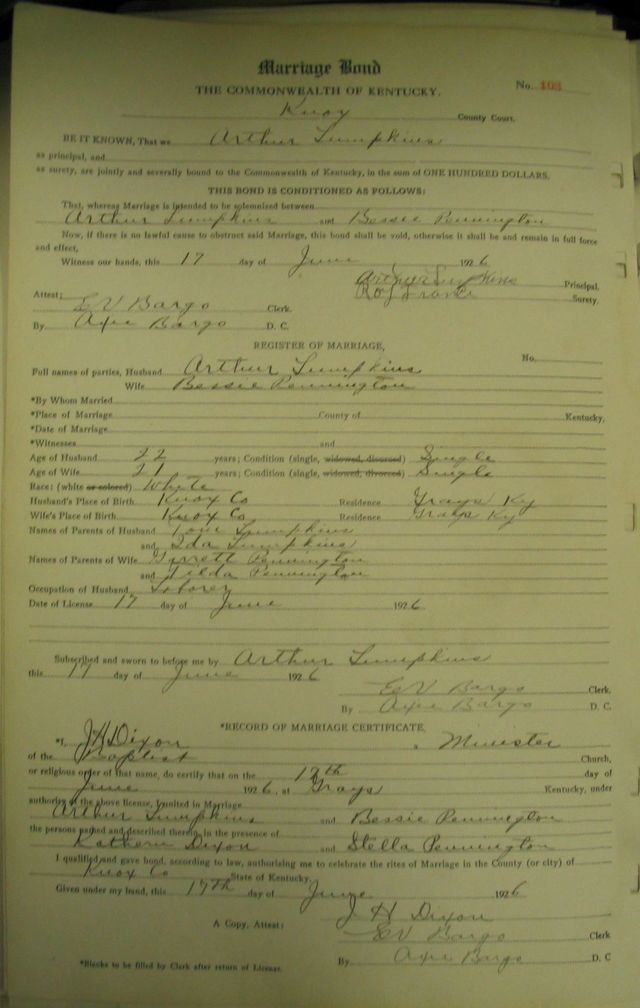 Marriage Bond
No. 103
THE COMMONWEALTH OF KENTUCKY.
Knox County Court.
BE IT KNOWN, That we Arthur Lumpkins
as principal, and
as surety, are jointly and severally bound to the Commonwealth of Kentucky, in the sum of ONE HUNDRED DOLLARS.
THIS BOND IS CONDITIONED AS FOLLOWS:
That, whereas Marriage is intended to be solemnized between
Arthur Lumpkins and Bessie Pennington
Now, if there is no lawful cause to obstruct said Marriage, this bond shall be void, otherwise it shall be and remain in full force
and effect.
Witness our hands, this 17 day of June 1926
Arthur Lumpkins Principal.
Surety.
Attest:
E V Bargo Clerk.
By Axie Bargo D. C.
REGISTER OF MARRIAGE,
No.
Full names of parties, Husband Arthur Lumpkins
Wife Bessie Pennington
*By Whom Married
*Place of Marriage County of Kentucky,
*Date of Marriage
*Witnesses and
Age of Husband 22 years; Condition (single, widowed, divorced) Single
Age of Wife 21 years; Condition (single, widowed, divorced) Single
Race: (white or colored) White
Husband's Place of Birth Knox Co Residence Grays Ky
Wife's Place of Birth Knox Co Residence Grays Ky
Names of Parents of Husband Lumpkins
and Ida Lumpkins
Names of Parents of Wife Garrett Pennington
and Tilda Pennington
Occupation of Husband
Date of License 17 day of June 1926
Subscribed and sworn to before me by Arthur Lumpkins
this 17 day of June 1926
E V Bargo Clerk,
By Axie Bargo D. C.
*RECORD OF MARRIAGE CERTIFICATE,
*I, J H Dixon, Minister
of the Baptist Church,
or religious order of that name, do certify that on the 17th day of
June 1926, at Grays Kentucky, under
authority of the above license, I united in Marriage
Arthur Lumpkins and Bessie Pennington
the persons named and described therein, in the presence of
Kathern Dixon and Stella Pennington
I qualified and gave bond, according to law, authorizing me to celebrate the rites of Marriage in the County (or city) of
Knox Co State of Kentucky.
Given under my hand, this 17th day of June 1926
J H Dixon
A Copy, Attest: E V Bargo Clerk
By Axie Bargo D. C
*Blanks to be filled by Clerk after return of License.